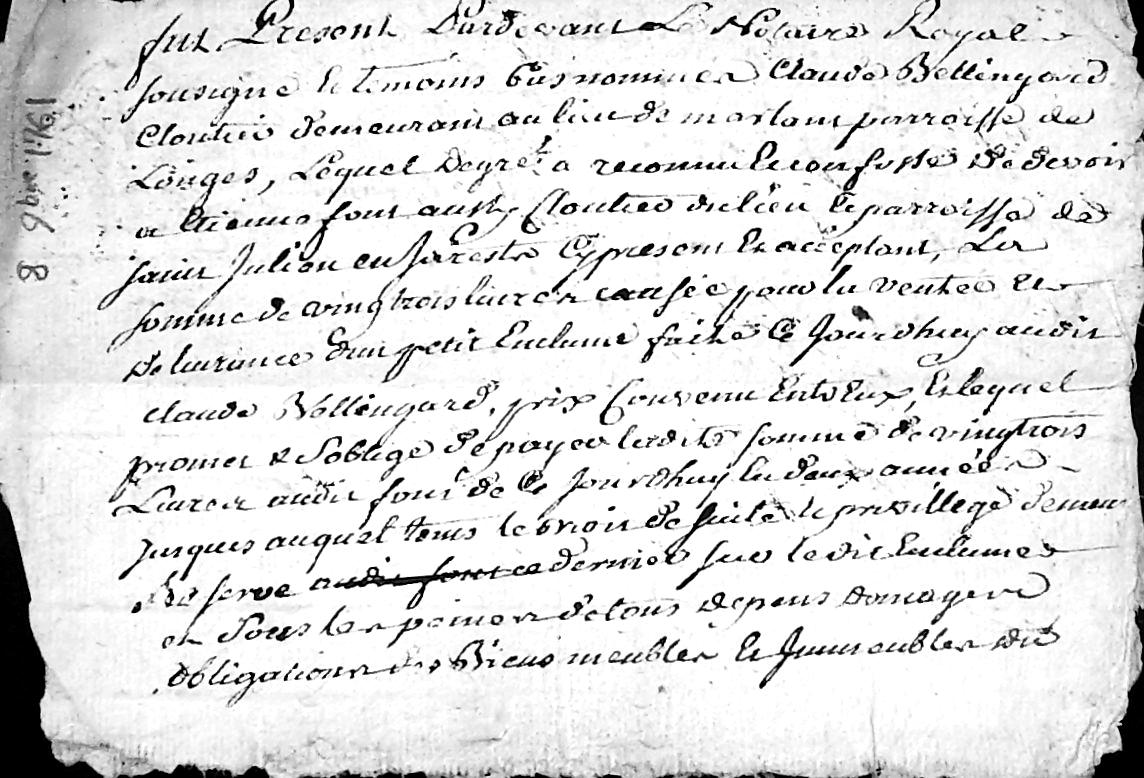 8 9bre 1761
fut Present Pardevant Le Notaire Royal
sousigné Et temoins bas nommes Claude Bellingard
Cloutier demeurant au lieu de mortant parroisse de
Longes, Lequel de gré a reconnu Et confessé de devoir
a Etienne font aussy Cloutier du lieu Et parroisse de
saint Julien en Jarests Cy present Et acceptant, La
somme de vingtrois livres causée pour la vente Et
delivrance d'un petit Enclume faite Ce Jourdhuy audit
claude Bellingard, prix Convenu Entreux, Et lequel
promet & Soblige de payer ladite somme de vingtrois
Livres audit font de Ce Jourdhuy En deux années
Jusques auquel tems le droit de suite Et privillege demeure
Reservé audit font ce dernier sur ledit Enclume
et Sous les peines de tous depens domages
obligations des Biens meubles Et Immeubles du